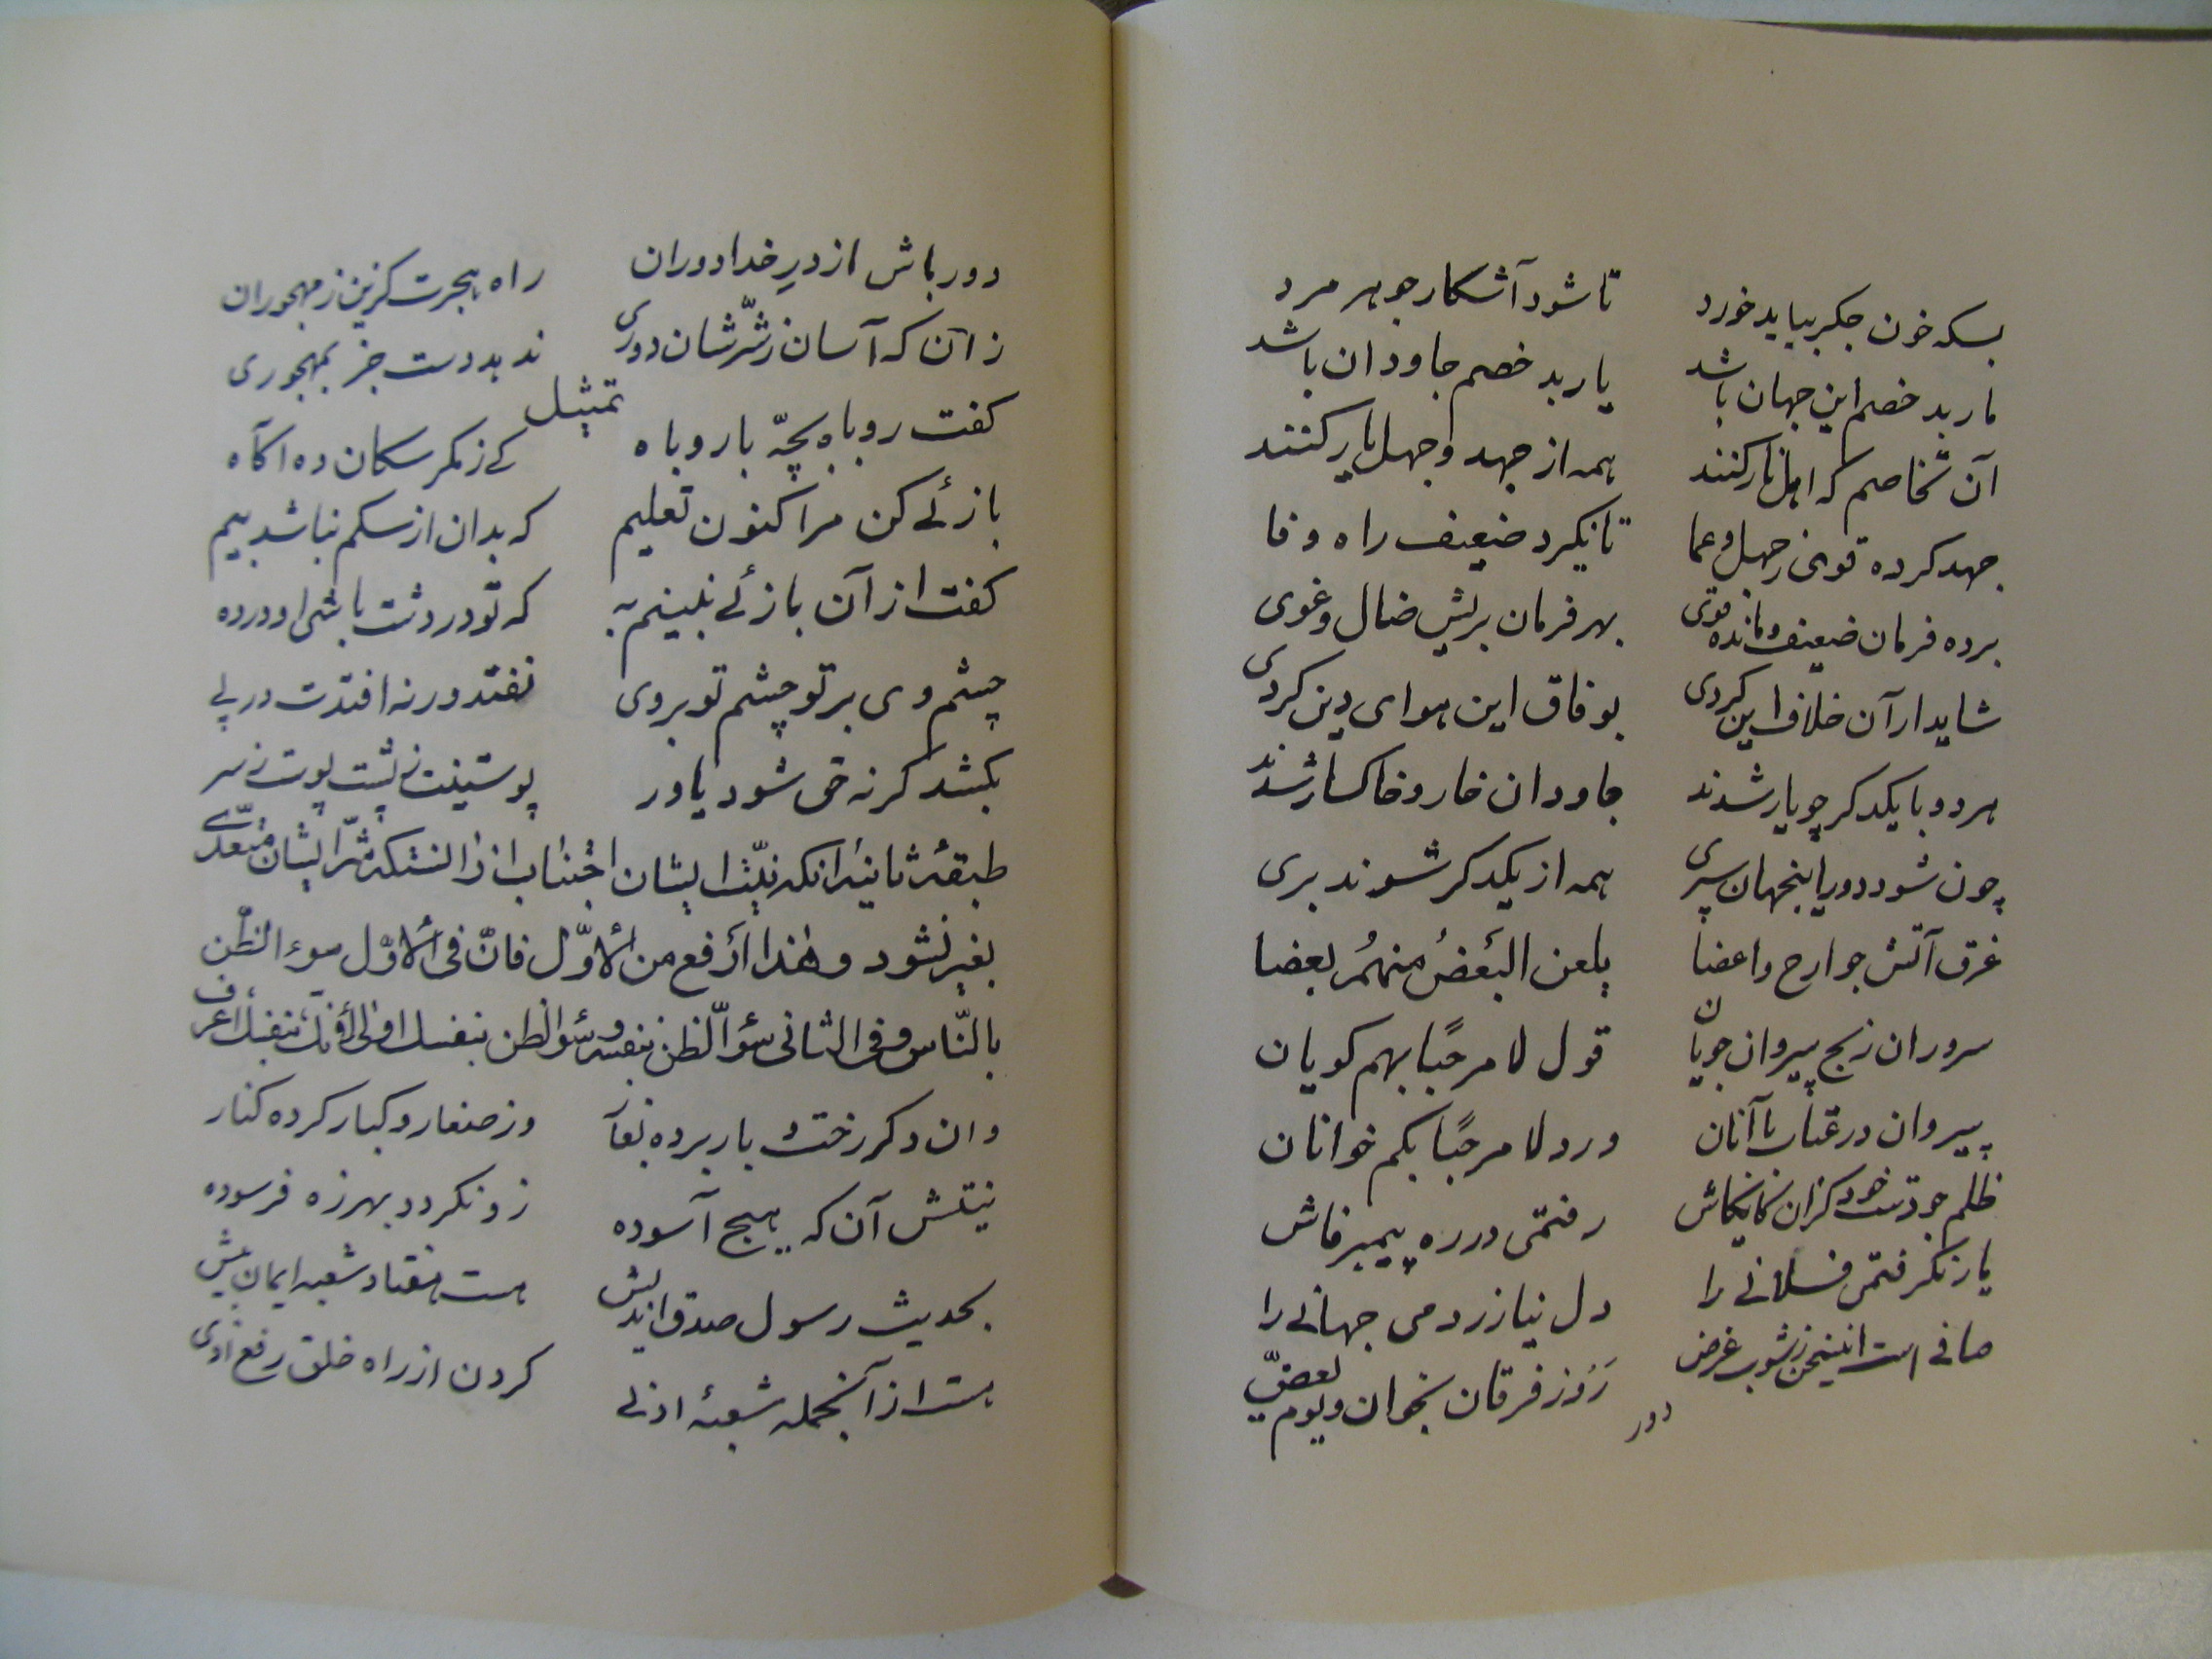 بسکه خون جکر بباید خورد تا شود آشکار جوهر مرد
مار بد خصم این جهان باشد یار بد خصم جاودان باشد
آن تخاصم که اهل نار کنند همه از جهد و جهل نار کنند
جهد کرده قوی ز جهل و عما تا نکیرد ضعیف راه وفا
برده فرمان ضعیف و مانده قوی بهر فرمان بریش ضال و غوی
شاید ار آن خلاف این کردی بوفاق این هوای دین کردی
هر دو با یکدکر چو یار شدند جاودان خار و خاکسار شدند
چون شود دور اینجهان سپری همه از یکدکر شوند بری
غرق آتش جوارح و اعضا یلعن البعضُ منهمُ بعضا
سروران زبج پیروان جویان قول لا مرحبًا بهم کویان
پیروان در عتاب با آنان ورد لا مرحبًا بکم خوانان
ظلم جو دست خود کزان کایکاش رفتمی در ره پیمبر فاش
یار نکرفتمی فلانی را دل نیازردمی جهانی را
صافی است این سخن ز شوب غرض رَوْ ز فرقان بخوان و یوم یعضّ
دور
دور باش از درِ خدا دوران راه هجرت کزین ز مهجوران
زان که آسان ز شرّشان دوری ندهد دست جز بمهجوری
تمثیل
کفت روباه بچّه با روباه کے ز مکر سکان ده اکاه
بازئے کن مرا کنون تعلیم که بدان از سکم نباشد بیم
کفت از آن بازئے نبینم به که تو در دشت باشی او در ده
چشم وی بر تو چشم تو بر وی نفتد ورنه افتدت در پے
بکشد کر نه حق شود یاور پوستینت ز پشت پوست ز سر
طبقهٔ ثانیه آنکه نیّت ایشان اجتناب از آنستکه شرّ ایشان متعدّے
بغیر نشود وهٰذا أرفع من الأوّل فانّ فی الأوّل سوء الظّن
بالنّاس و فی الثانی سوء الظّن بنفسه و سوء الظن بنفسک اولی لأنّک بنفسک اعرف
وان دکر رخت و بار برده بغار وز صغار و کبار کرده کنار
نیتش آن که هیچ آسوده زو نکردد بهرزه فرسوده
بحدیث رسول صدق اندیش هست هفتاد شعبه ایمان بیش
هست از آنجمله شعبهٔ ادنی کردن از راه خلق رفع اذی